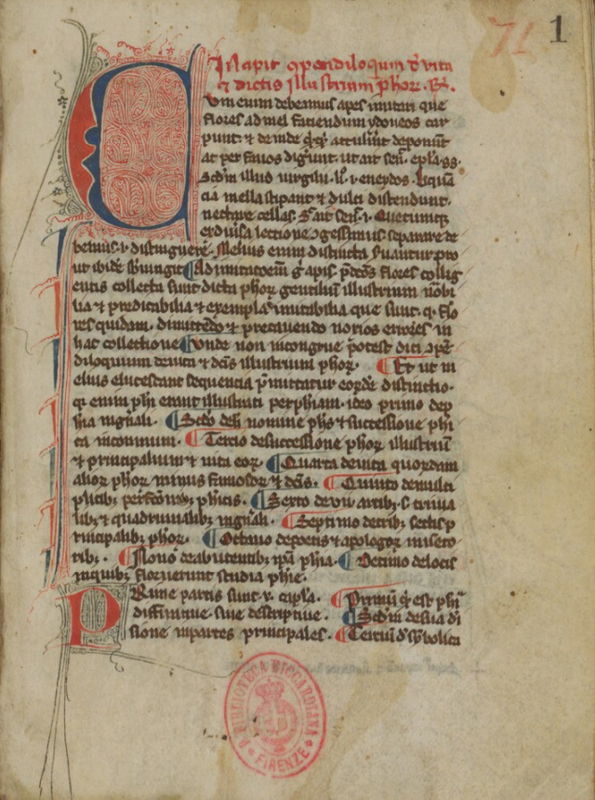 71
1
Incipit conpendiloquium de vita
et dictis illustrium phor.
Cum enim debeamus apes imitari que
flores ad mel faciendum ydoneos car
punt. et deinde attulerunt deponunt
ac per fauos digerunt. ut ait sen. epla
Scdm illud virgilii. eneydos. liqua
cia mella stipant et dulci distendunt.
nectare cellas. Sic ait sen.
diuersa lectione congessimus separare de
bemus. distinguere. Melius enim distincta seruantur pro
ut ibidem subiungit Ad imitacoem apis flores collig
entis collecta sunt dicta phor gentilium illustrium nobi
lia et predicabilia et exempla imitabilia que sunt. flo
res quidam. dimittendo et precauendo noxios errores in
hac collectione Unde non incongrue potest dici conpen
diloquium de uita et dcis illustrium phor. Et ut in
elius elucescant sequencia premittatur eorundem distinctio.
enim phi erant illustrati per phiam. ideo primo de p
hia in gnali. Scdo de nomine phs et successione phi
ca in communi. Tercio de successione phor illustrium
et principalium et uita eor. Quarta de uita quordam
alior phor minus famosor et dcis. Quinto de multi
plicibus perfectionibus phicis. Sexto de vii artibus. s. triuia
libus et quadriuialibus in gnali. Septimo de tribus sectis p
rincipalibus phor. Octauo de poetis et apologor
ribus. Nono de abutentibus ipsa phia. Decimo de locis
in quibus floruerunt studia phie.
Prime partis sunt v. capla. Primum quid est phi
diffinitiue siue descriptiue. Scdm de sua di
uisione in partes principales. Tercium de simbolica
BIBLIOTECA RICCARDIANA
FIRENZE